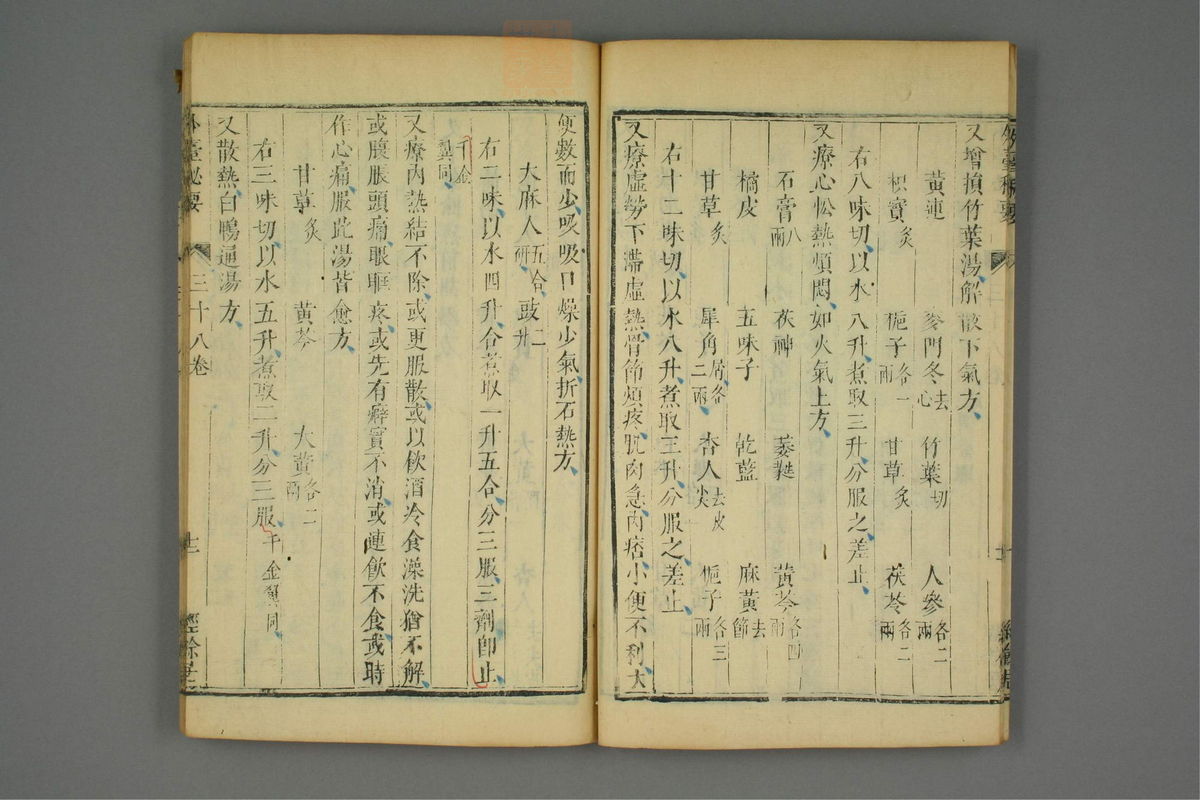 又增損竹葉湯、解散下氣方、
黃連 麥門冬去心 竹葉切 人參各二兩
枳實炙 梔子各一兩 甘草炙 茯苓各二兩
右八味切、以水八升、煮取三升、分服之差止、
又療心忪熱煩悶、如火氣上方、
石膏八兩 茯神 萎蕤 黃芩各四兩
橘皮 五味子 乾藍 麻黃去節
甘草炙 犀角屑各二兩 杏人去皮尖 梔子各三兩
右十二味切、以水八升、煮取三升、分服之差止
又療虛勞下滯、虛熱骨節煩疼、肌肉急、內痞、小便不利、大
便數而少、吸吸口燥少氣、折石熱方、
大麻人五合研 豉二升
右二味、以水四升、合煮取一升五合、分三服、三劑即止、
千金翼同
又療內熱結不除、或更服散、或以飲酒冷食澡洗猶不解、
或腹脹頭痛、眼眶疼、或先有癖實不消、或連飲不食、或時
作心痛、服此湯皆愈方、
甘草炙 黃芩 大黃各二兩
右三味切、以水五升、煮取二升、分三服、千金翼同、
又散熱、白鴨通湯方、
外臺秘要 三十八卷 十二 經餘居